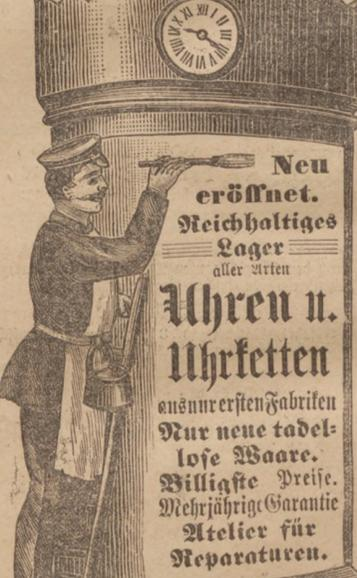 Neu
eröffnet.
Reichhaltiges
Lager
aller Arten
Uhren u.
Uhrketten
aus nur ersten Fabriken
Nur neue tadel-
lose Waare.
Billigste Preise.
Mehrjährige Garantie
Atelier für
Reparaturen.